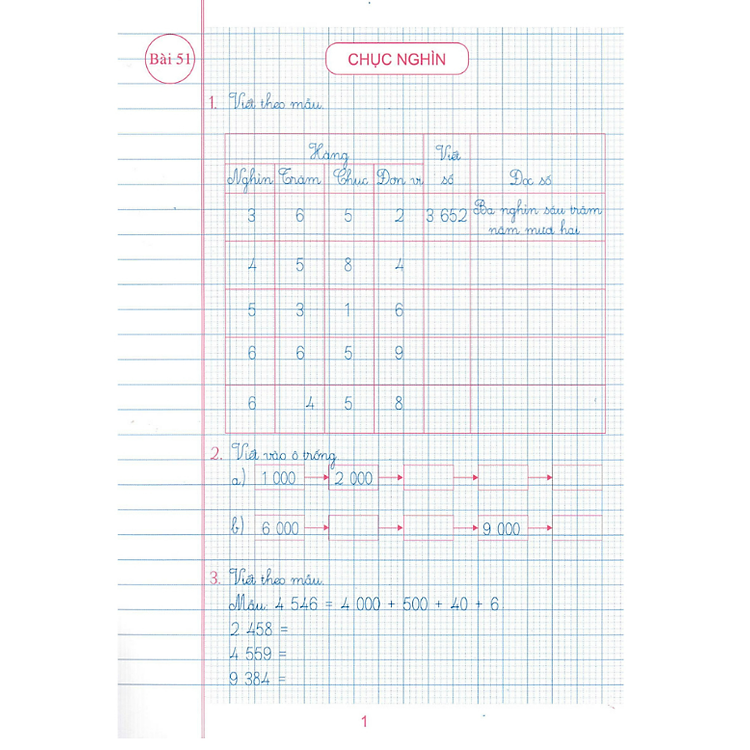 Bài 51
CHỤC NGHÌN
1. Viết theo mẫu.
Hàng Viết
Nghìn Trăm Chục Đơn vị số Đọc số
3 6 5 2 3 652 Ba nghìn sáu trăm
năm mươi hai
4 5 8 4
5 3 1 6
6 6 5 9
6 4 5 8
2. Viết vào ô trống.
a) 1 000 2 000
b) 6 000 9 000
3. Viết theo mẫu.
Mẫu: 4 546 = 4 000 + 500 + 40 + 6
2 458 =
4 559 =
9 384 =
1